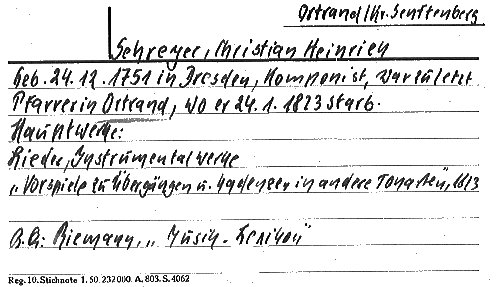 Ortrand/Kr. Senftenberg
Schreyer, Christian Heinrich
Geb. 24. 12. 1751 in Dresden, Komponist, war zuletzt
Pfarrer in Ortrand, wo er 24. 1. 1823 starb.
Hauptwerke:
Lieder, Instrumentalwerke
„Vorspiele zu Übergängen u. Kadenzen in andere Tonarten", 1813
Riemann, „Musik-Lexikon"
Reg. 10. Stichnote 1. 50. 232000. A. 803. S. 4062